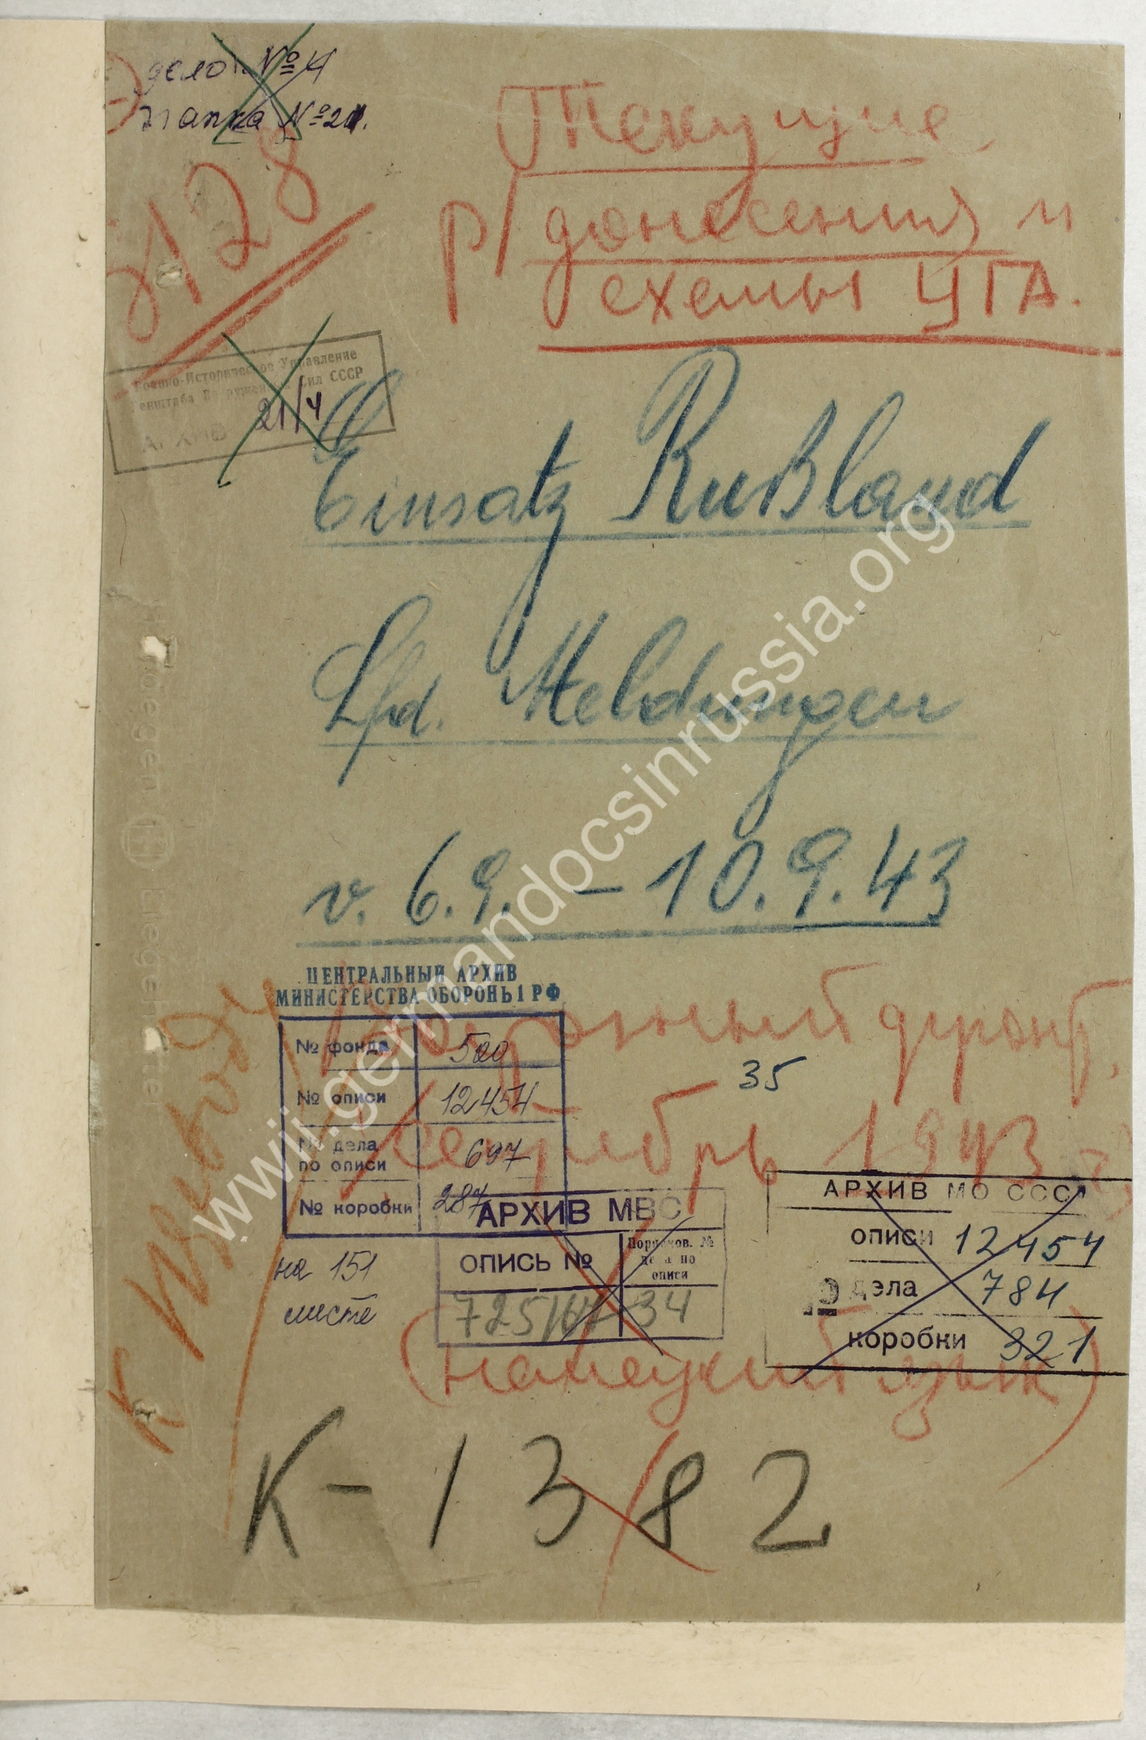 дело № 4
папка № 21.
8128
Текущие
р/донесения и
схемы ЦГА.
Военно-Историческое Управление
Генштаба Вооруженных Сил СССР
АРХИВ
21/4
Einsatz Rußland
Lfd. Meldungen
v. 6.9. – 10.9.43
ЦЕНТРАЛЬНЫЙ АРХИВ
МИНИСТЕРСТВА ОБОРОНЫ РФ
№ фонда 500
№ описи 12454
№ дела по описи 697
№ коробки 287
фронт.
35
сентябрь 1943
АРХИВ МВС
ОПИСЬ № Порядков. № дела по описи
725 34
АРХИВ МО СССР
№ описи 12454
дела 784
коробки 321
на 151
листе
(немецкий язык)
К-1382
wwii.germandocsinrussia.org